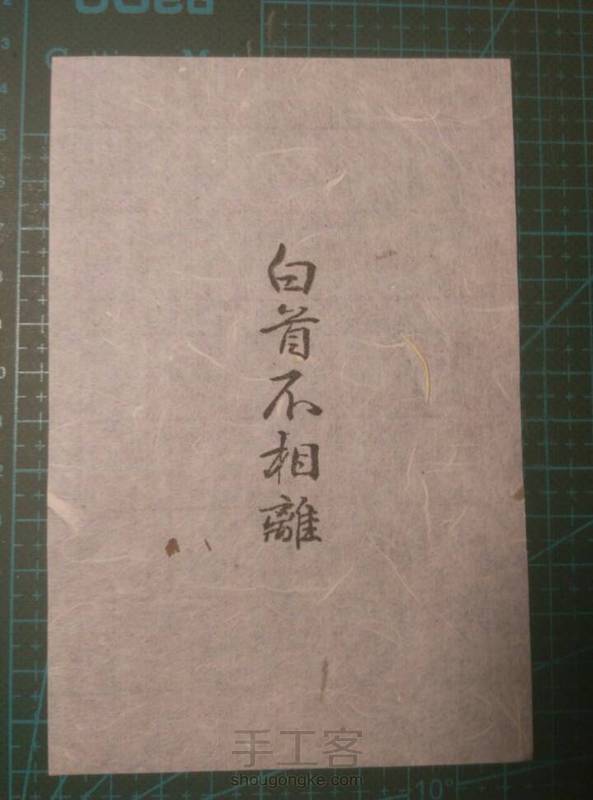 白首不相離
手工客
shougongke.com
10°